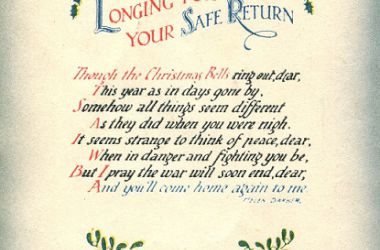 LONGING FOR
YOUR SAFE RETURN
Though the Christmas Bells ring out, dear,
This year as in days gone by,
Somehow all things seem different
As they did when you were nigh.
It seems strange to think of peace, dear,
When in danger and fighting you be,
But I pray the war will soon end, dear,
And you'll come home again to me.